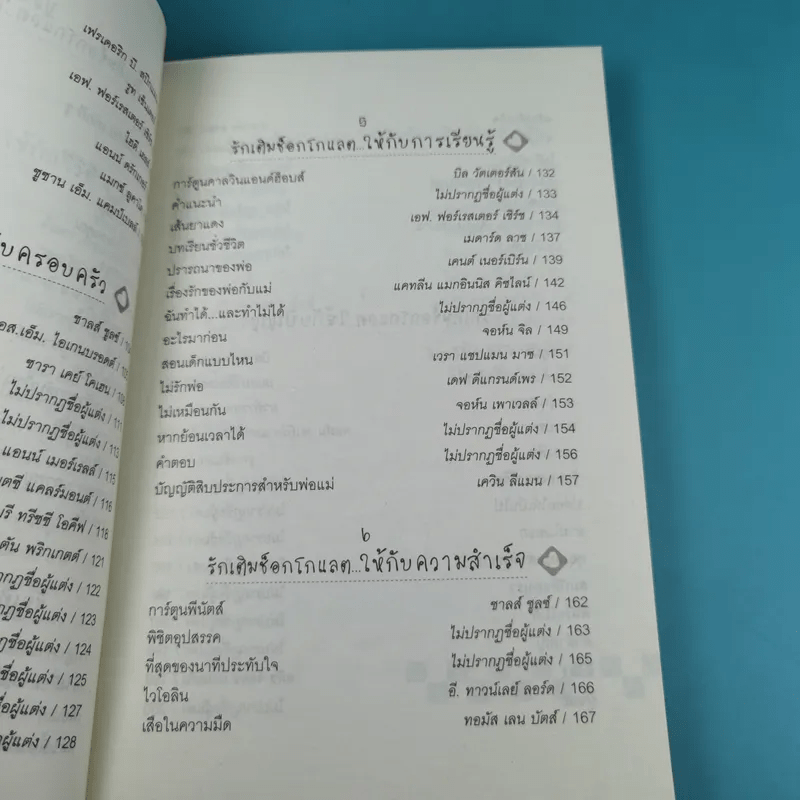 เฟรเดอริก บี.
รูท
เอฟ. ฟอร์เรสเตอร์
ไอดี
แอนน์
แมกซ์
ซูซาน เอ็ม. แคมป์เบลล์
ครอบครัว
ชาลส์ ชูลซ์
ไอเกนบรอดต์
ซารา เคย์ โคเฮน
ไม่ปรากฏชื่อผู้แต่ง / 111
ไม่ปรากฏชื่อผู้แต่ง / 113
แอนน์ เมอร์เรลล์ / 115
แคลร์มอนต์ / 116
ทรีซซี โอคีฟ / 118
พริกเกตต์ / 121
ปรากฏชื่อผู้แต่ง / 122
ชื่อผู้แต่ง / 123
ชื่อผู้แต่ง / 124
ชื่อผู้แต่ง / 125
ชื่อผู้แต่ง / 127
ผู้แต่ง / 128
รักเติมช็อกโกแลต...ให้กับการเรียนรู้
การ์ตูนคาลวินแอนด์ฮ็อบส์ บิล วัตเตอร์สัน / 132
คำแนะนำ ไม่ปรากฏชื่อผู้แต่ง / 133
เส้นยาแดง เอฟ. ฟอร์เรสเตอร์ เชิร์ช / 134
บทเรียนชั่วชีวิต เมดาร์ด ลาซ / 137
ปรารถนาของพ่อ เคนต์ เนอร์เบิร์น / 139
เรื่องรักของพ่อกับแม่ แคทลีน แมกอินนิส คิชไลน์ / 142
ฉันทำได้...และทำไม่ได้ ไม่ปรากฏชื่อผู้แต่ง / 146
อะไรมาก่อน จอห์น จิล / 149
สอนเด็กแบบไหน เวรา แชปแมน มาซ / 151
ไม่รักพ่อ เดฟ ดีแกรนด์เพร / 152
ไม่เหมือนกัน จอห์น เพาเวลล์ / 153
หากย้อนเวลาได้ ไม่ปรากฏชื่อผู้แต่ง / 154
คำตอบ ไม่ปรากฏชื่อผู้แต่ง / 156
บัญญัติสิบประการสำหรับพ่อแม่ เควิน ลีแมน / 157
๖
รักเติมช็อกโกแลต...ให้กับความสำเร็จ
การ์ตูนพีนัตส์ ชาลส์ ชูลซ์ / 162
พิชิตอุปสรรค ไม่ปรากฏชื่อผู้แต่ง / 163
ที่สุดของนาทีประทับใจ ไม่ปรากฏชื่อผู้แต่ง / 165
ไวโอลิน อี. ทาวน์เลย์ ลอร์ด / 166
เสือในความมืด ทอมัส เลน บัตส์ / 167